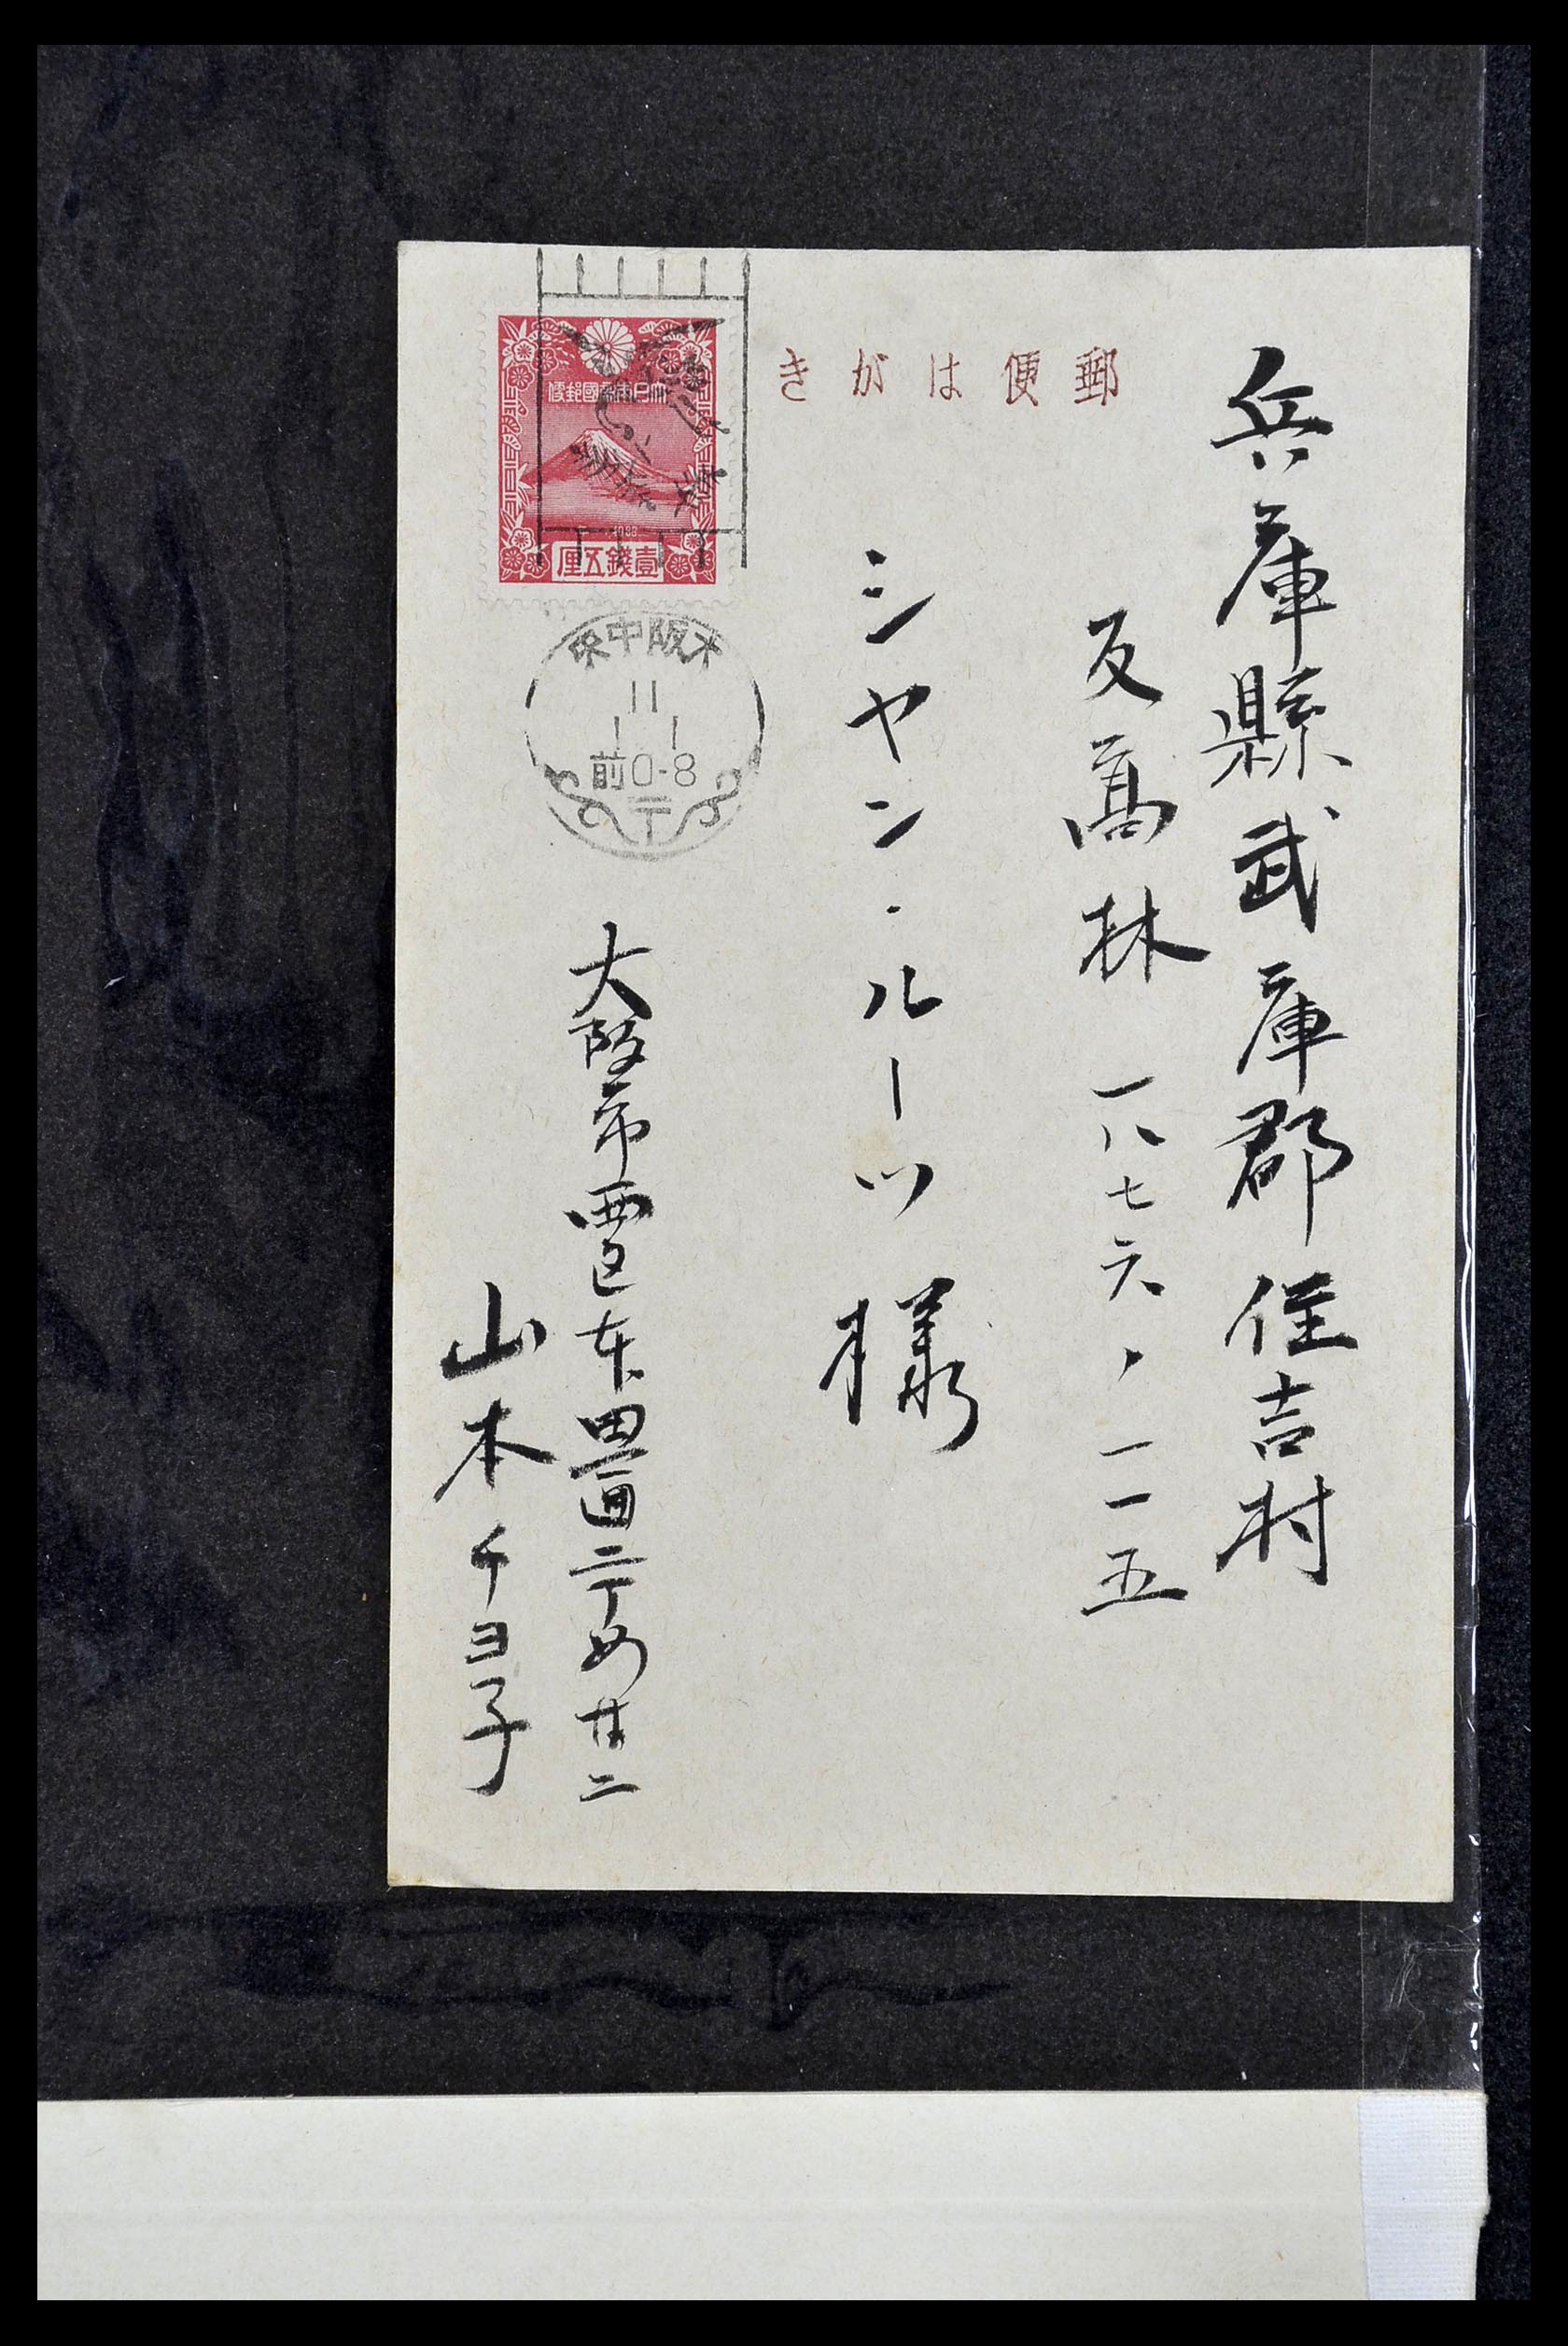 郵便はがき
兵庫縣武庫郡住吉村
反高林一八七六ノ一一五
シヤン・ルーツ様
大日本帝國郵便
1936
壹錢五厘
大阪中央
11
1 1
前0-8
大阪市西区本田通二丁め廿二
山本チヨ子